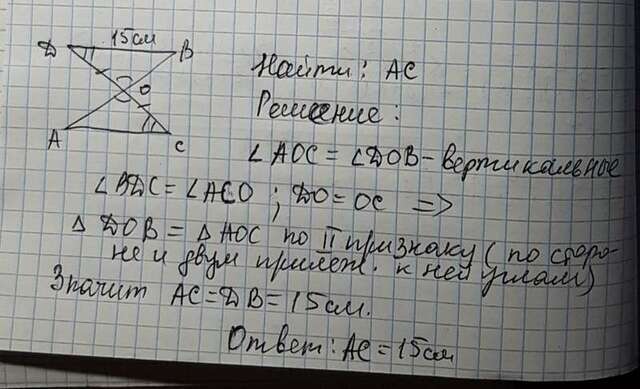 15см
D
B
O
A
C
Найти: AC
Решение:
∠AOC = ∠DOB - вертикальные
∠BDC = ∠ACO ; DO = OC =>
△ DOB = △ AOC по II признаку (по сторо-
не и двум прилеж. к ней углам)
Значит AC = DB = 15 см.
Ответ: AC = 15см